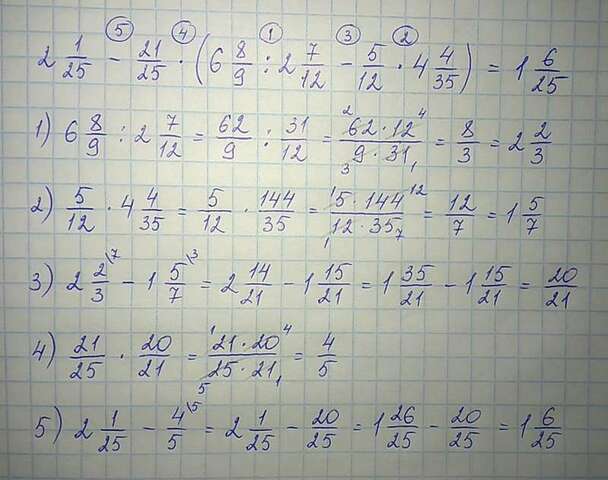 ⑤ ④ ① ③ ②
2 1/25 − 21/25 · (6 8/9 : 2 7/12 − 5/12 · 4 4/35) = 1 6/25
1) 6 8/9 : 2 7/12 = 62/9 : 31/12 = 62² · 12⁴ / ₃9 · 31₁ = 8/3 = 2 2/3
2) 5/12 · 4 4/35 = 5/12 · 144/35 = ¹5 · 144¹² / ₁12 · 35₇ = 12/7 = 1 5/7
3) 2 2/3 \7 − 1 5/7 \3 = 2 14/21 − 1 15/21 = 1 35/21 − 1 15/21 = 20/21
4) 21/25 · 20/21 = ¹21 · 20⁴ / ₅25 · 21₁ = 4/5
5) 2 1/25 − 4/5 \5 = 2 1/25 − 20/25 = 1 26/25 − 20/25 = 1 6/25